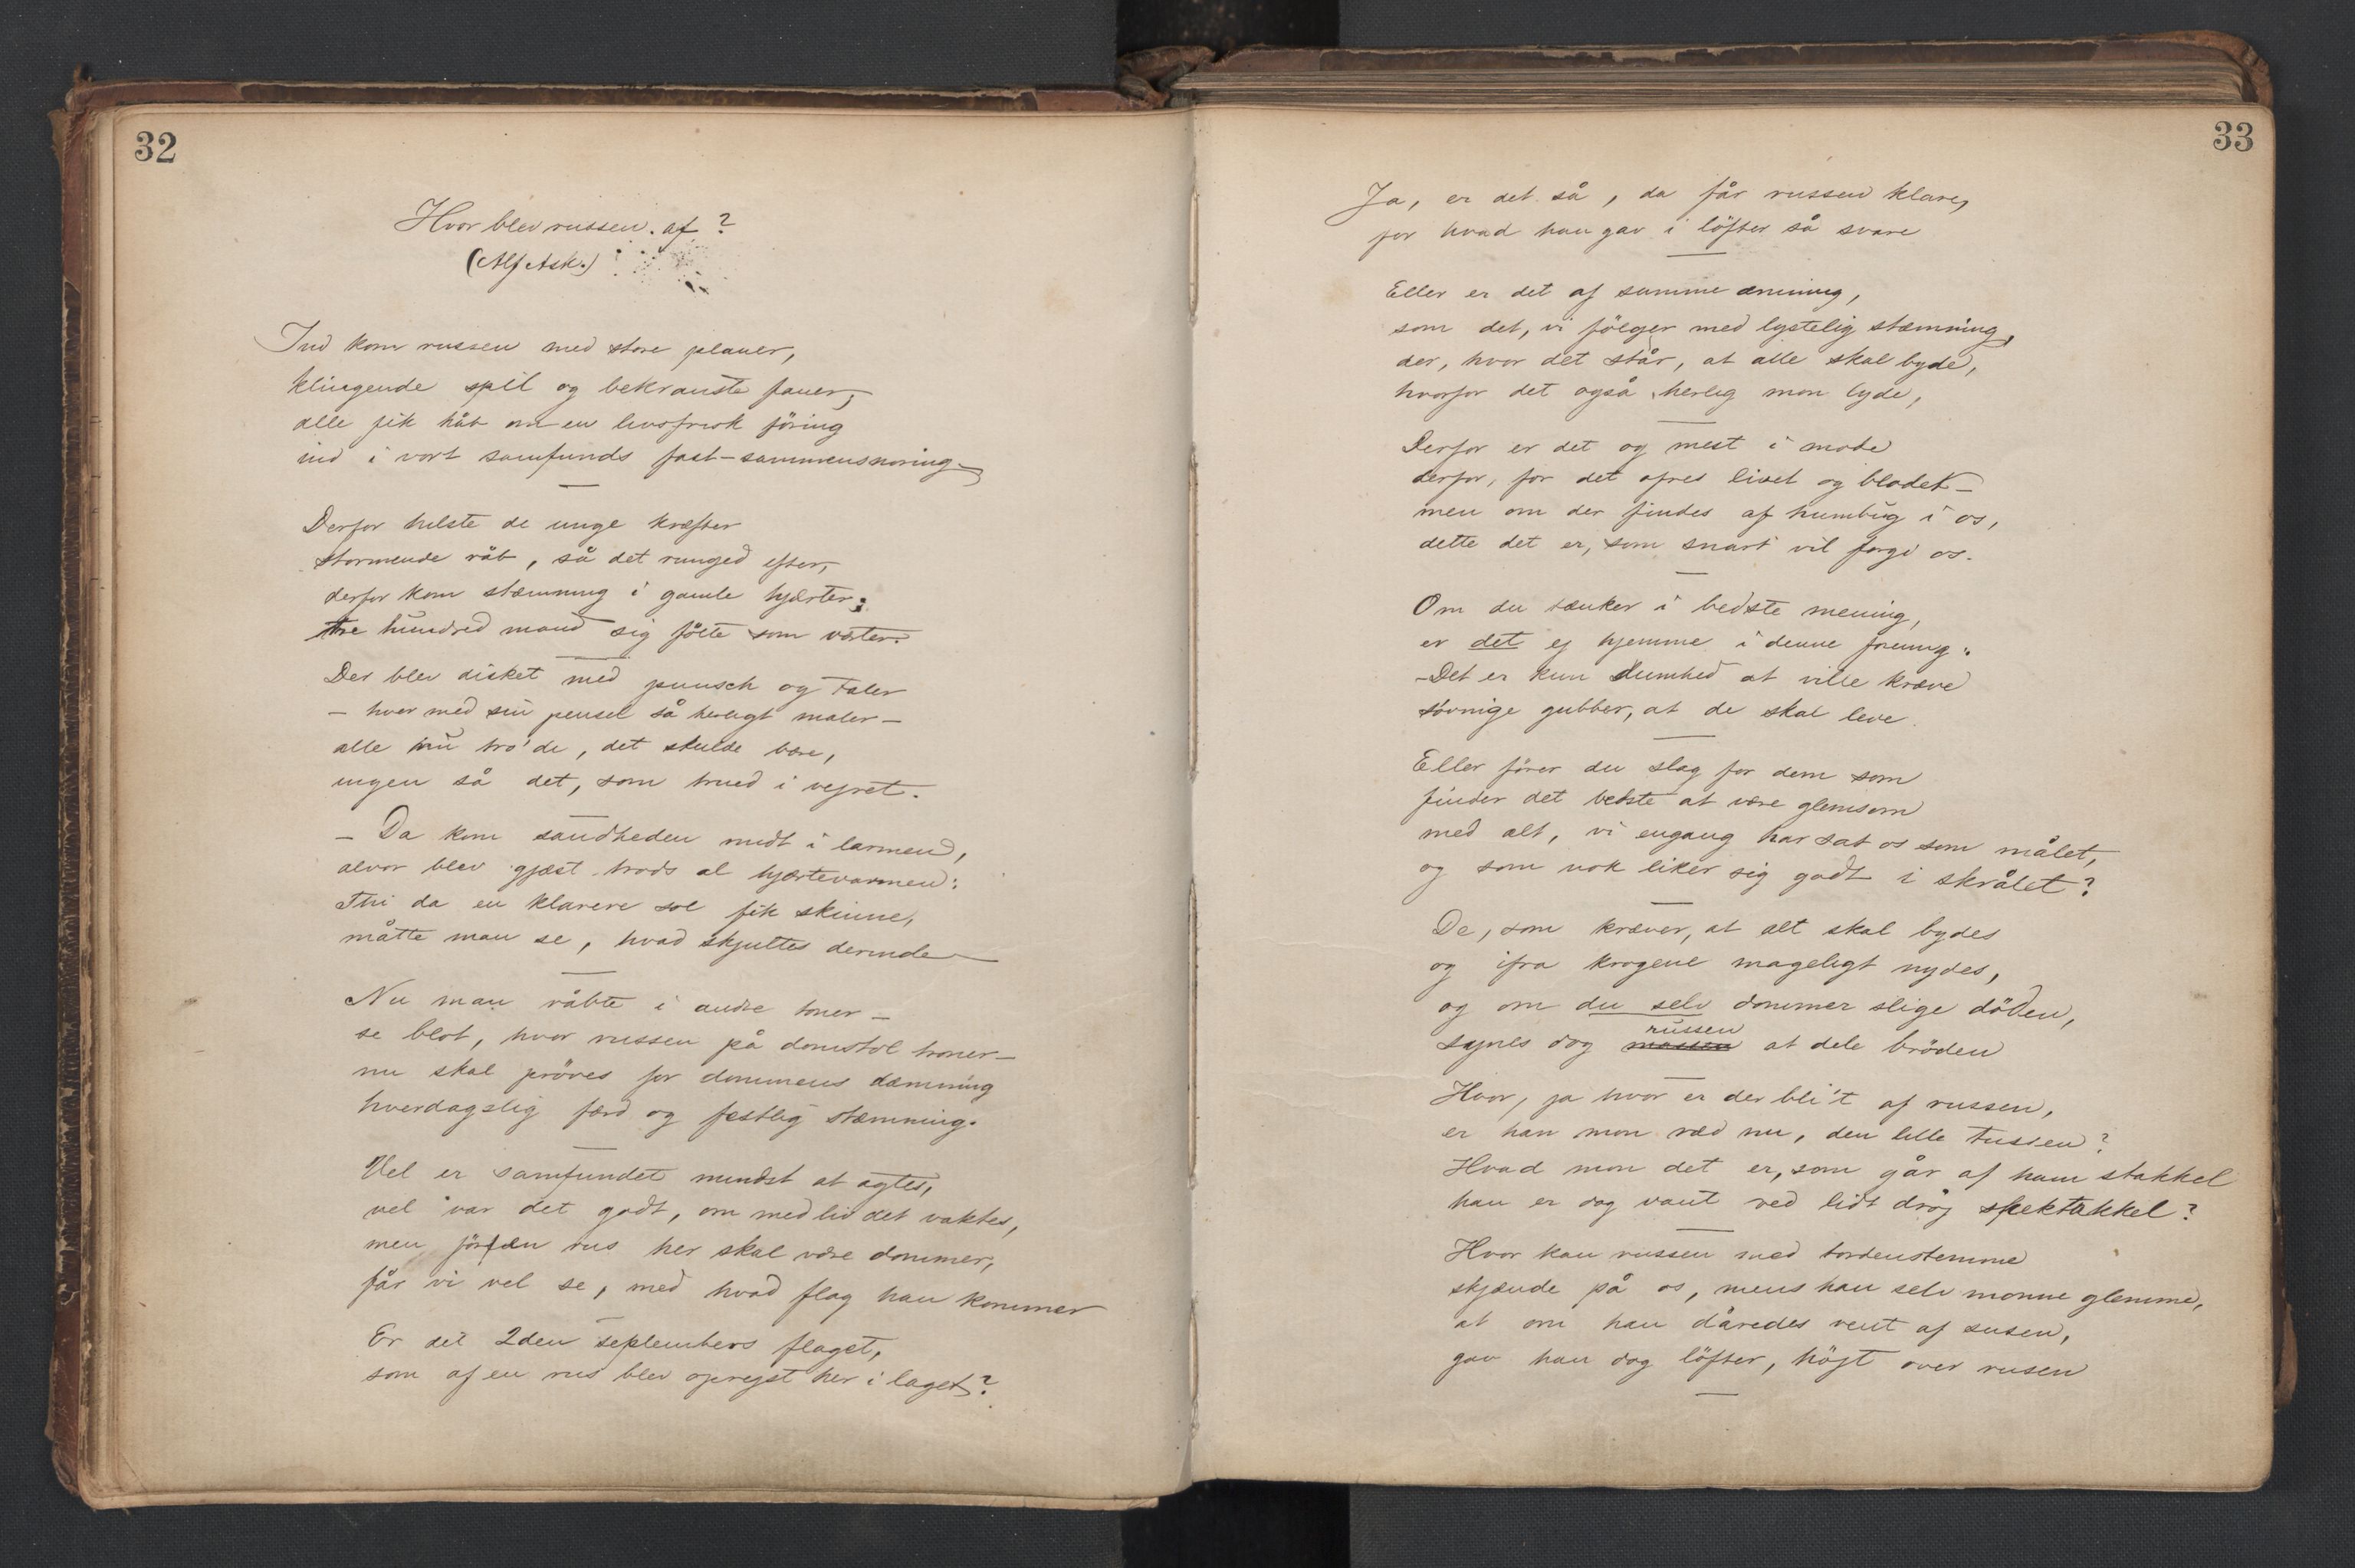 32
Hvor blev russen af?
(Alf Ask.)
Ind kom russen med store planer,
klingende spil og bekranste faner,
alle fik håb om en livsfrisk föring
ind i vort samfunds fast-sammensnöring
Derfor hilste de unge kræfter
stormende råb, så det runged efter,
derfor kom stæmning i gamle hjærter;
tre hundred mand sig fölte som værter.
Der blev disket med punsch og taler
– hver med sin pensel så herligt maler –
alle nu tro'de, det skulde være,
ingen så det, som trued i vejret.
– Da kom sandheden midt i larmen,
alvor blev gjæst trods al hjærtevarmen:
Thi da en klarere sol fik skinne,
måtte man se, hvad skjultes derinde
Nu man råbte i andre toner –
se blot, hvor russen på domstol troner –
nu skal pröves for dommens dæmning
hverdagslig færd og festlig stæmning.
Vel er samfundet mindst at agtes,
vel var det godt, om med liv det vaktes,
men för en rus her skal være dommer,
får vi vel se, med hvad flag han kommer
Er det 2den septembers flaget,
som af en rus blev oprejst her i laget?
33
Ja, er det så, da får russen klare,
for hvad han gav i löfter så svare
Eller er det af samme æmning,
som det, vi fölger med lystelig stæmning,
der, hvor det står, at alle skal byde,
hvorfor det også herlig mon lyde,
Derfor er det og mest i mode
derfor, for det ofres livet og blodet –
men om der findes af humbug i os,
dette det er, som snart vil forgi os.
Om du tænker i bedste mening,
er det ej hjemme i denne forening.
– Det er kun dumhed at ville kræve
sövnige gubber, at de skal leve.
Eller förer du slag for dem som
finder det bedste at være glemsom
med alt, vi engang har sat os som målet,
og som nok liker sig godt i skrålet?
De, som kræver, at alt skal bydes
og ifra krogene mageligt nydes,
og om du selv dömmer slige döden,
russen
synes dog massen at dele bröden
Hvor, ja hvor er der bli't af russen,
er han mon ræd nu, den lille tussen?
Hvad mon det er, som går af ham stakkel
han er dog vant ved lidt dröj spektakkel?
Hvor kan russen med tordenstemme
skjænde på os, mens han selv monne glemme,
at om han dåredes vent af susen,
gav han dog löfter, höjt over rusen